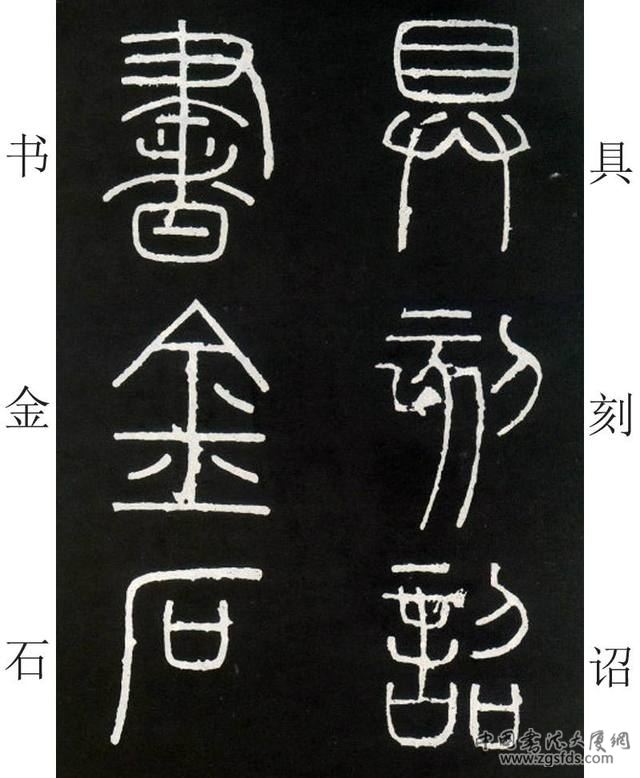 具刻诏
具刻詔
書金石
书金石
中国书法大厦网
www.zgsfds.com